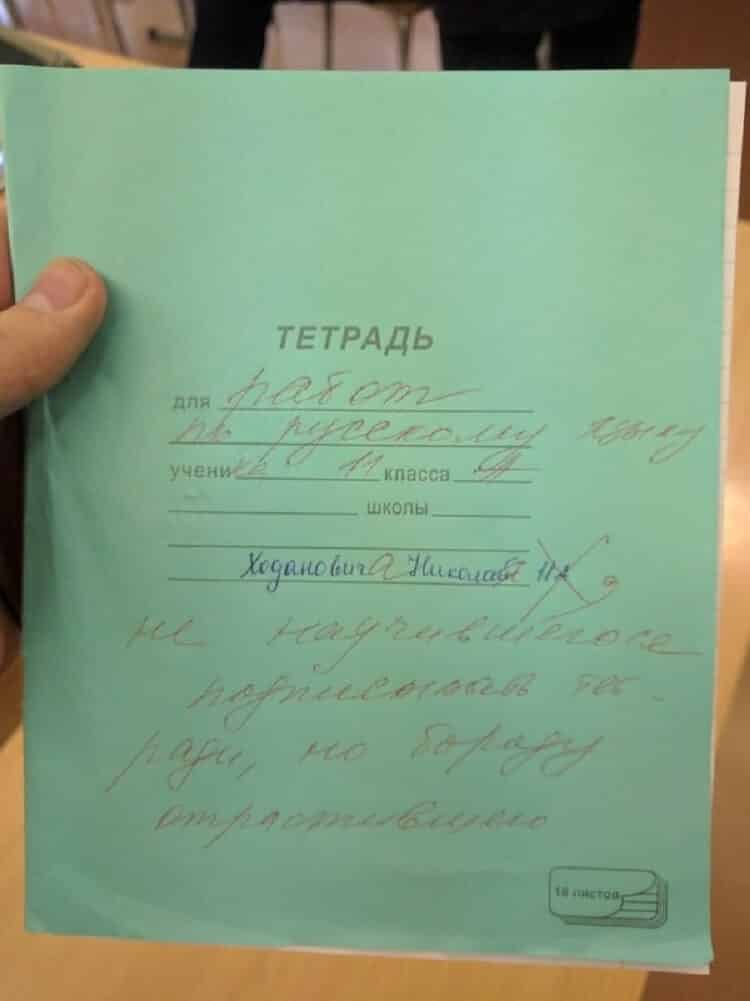 ТЕТРАДЬ
для работ
по русскому языку
ученика 11 класса А
школы
ХодановичА Николая 11А
не научившегося
подписывать тет-
ради, но бороду
отрастившего
18 листов